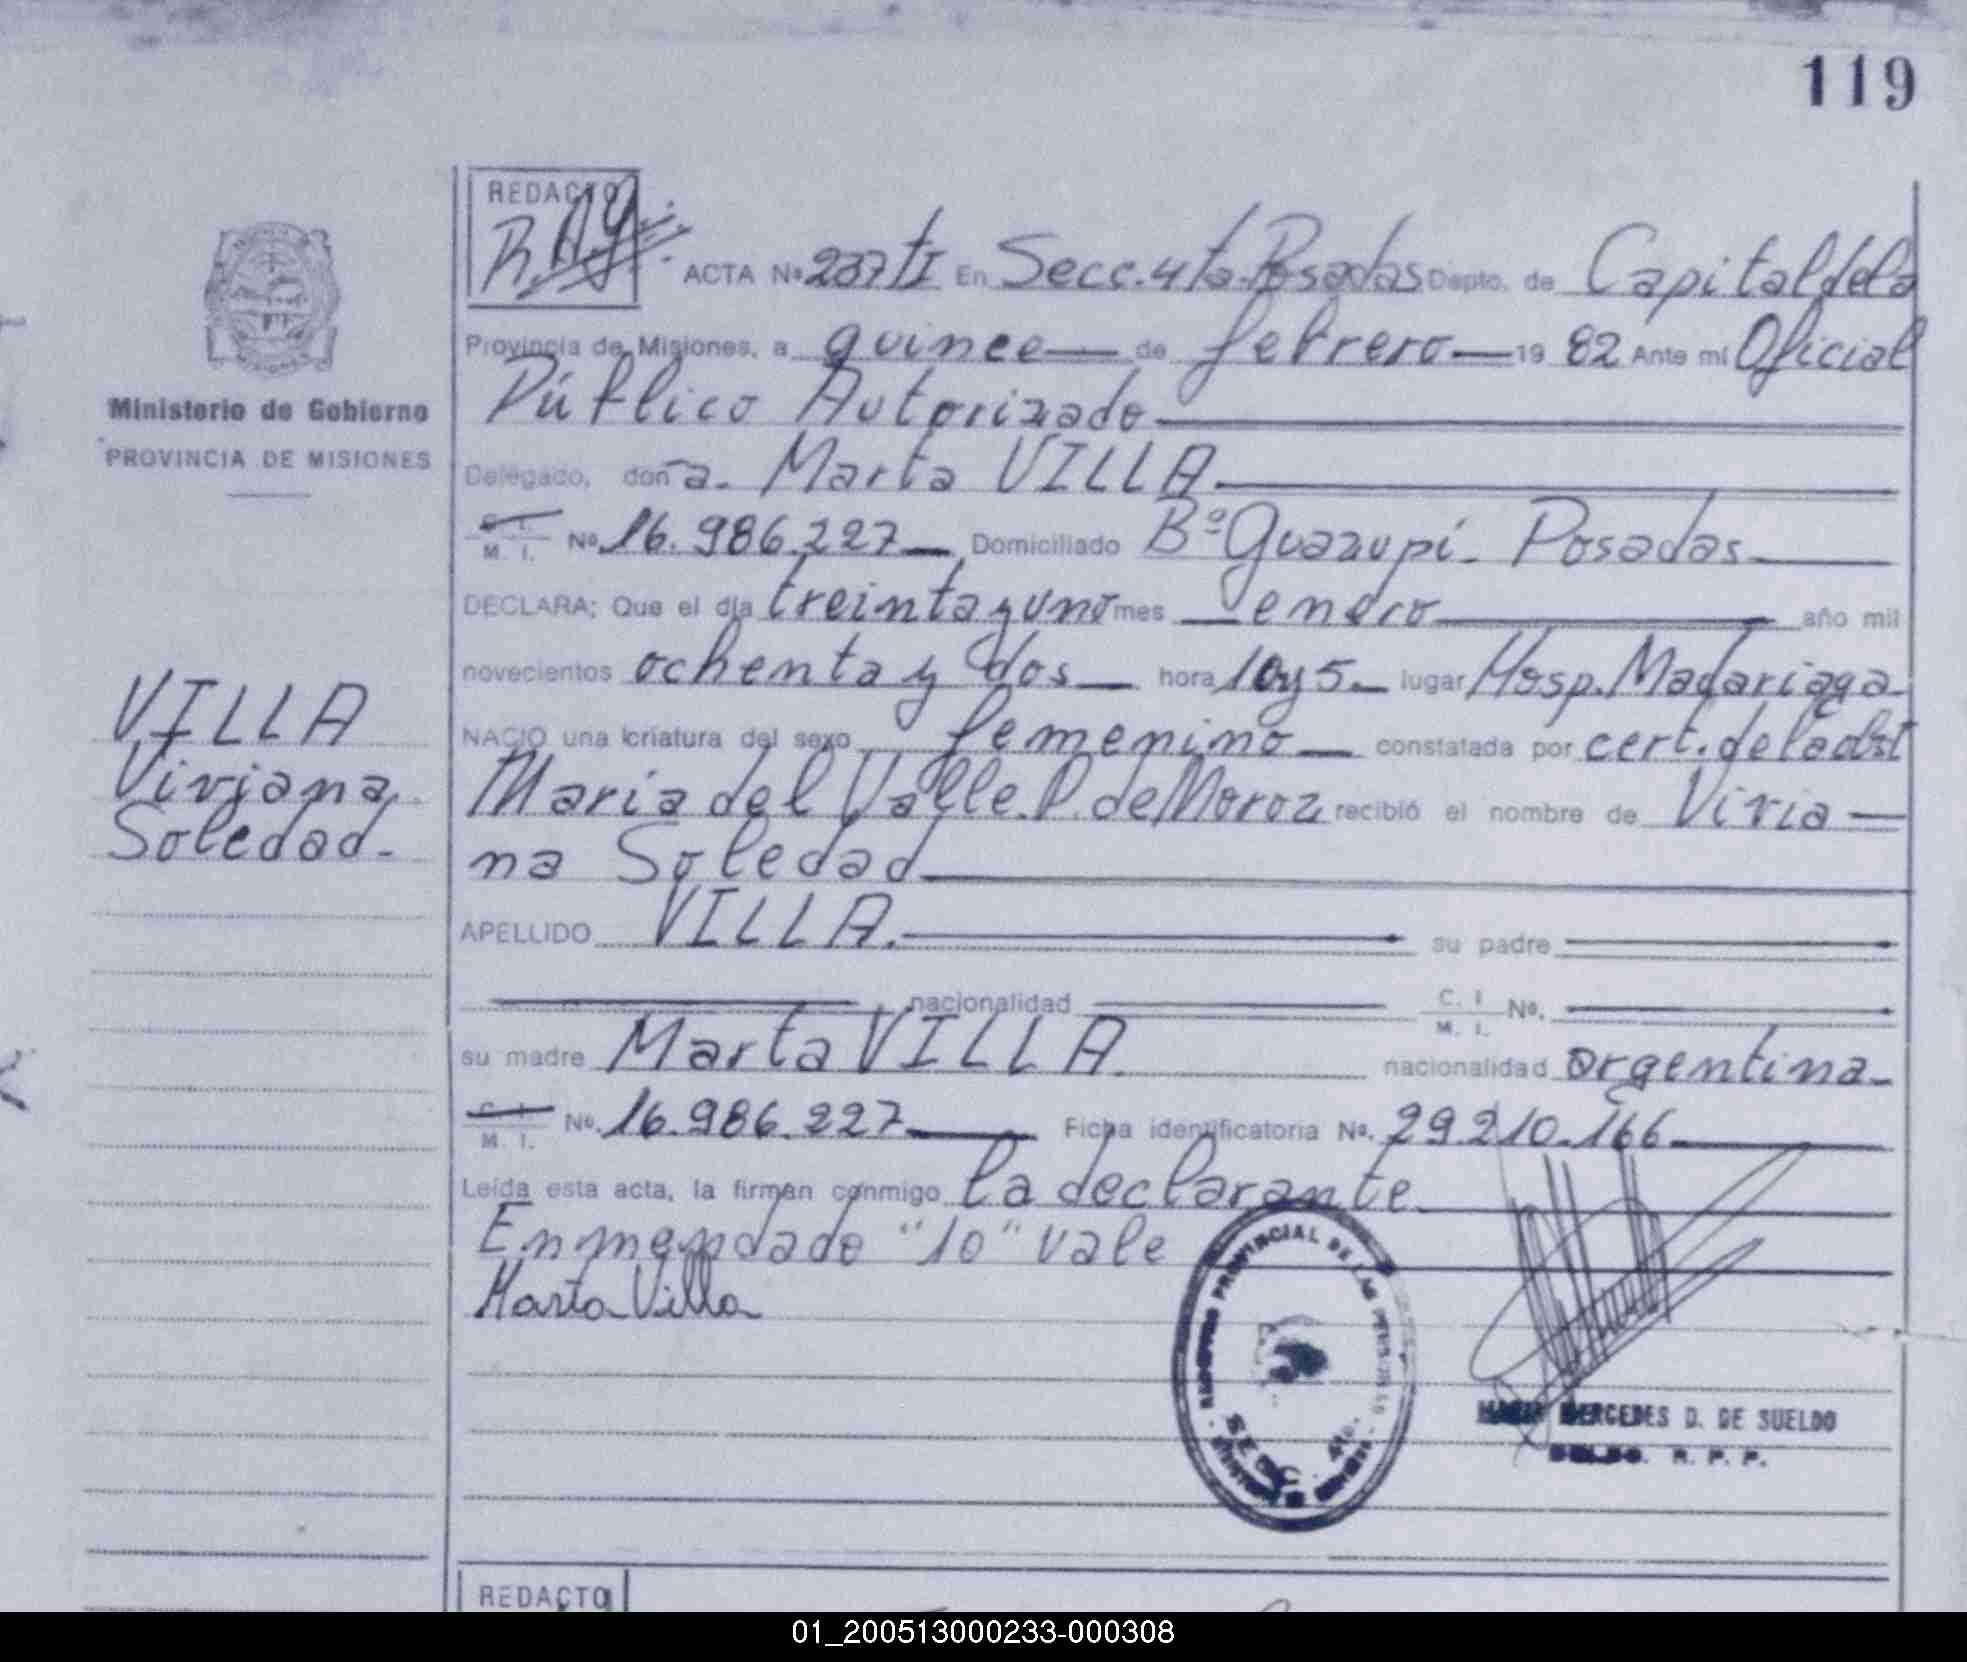 119
REDACTO
ACTA Nº 237 tI En Secc. 4ta. Posadas Depto. de Capital de la
Provincia de Misiones, a quince de febrero 19 82 Ante mi Oficial
Público Autorizado
Ministerio de Gobierno
PROVINCIA DE MISIONES
Delegado, doña. Marta VILLA.
C. I. M. I. Nº. 16.986.227 Domiciliado Bº Guazupí - Posadas
DECLARA; Que el día treinta y uno mes enero año mil
novecientos ochenta y dos hora 10 y 5 lugar Hosp. Madariaga
VILLA
Viviana
Soledad.
NACIO una criatura del sexo femenino constatada por cert. de la obst
María del Valle P. de Moroz recibió el nombre de Vivia
na Soledad
APELLIDO VILLA. su padre
nacionalidad C. I. M. I. Nº.
su madre Marta VILLA nacionalidad argentina
C. I. M. I. Nº. 16.986.227 Ficha identificatoria Nº. 29.210.166
Leída esta acta, la firman conmigo la declarante
Enmendado "10" vale
Marta Villa
PROVINCIAL DE LAS
SECC. 4ta.
MERCEDES D. DE SUELDO
R. P. P.
REDACTO
01_200513000233-000308